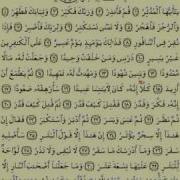 يَٰٓأَيُّهَا ٱلْمُدَّثِّرُ ١ قُمْ فَأَنذِرْ ٢ وَرَبَّكَ فَكَبِّرْ ٣ وَثِيَابَكَ فَطَهِّرْ ٤
وَٱلرُّجْزَ فَٱهْجُرْ ٥ وَلَا تَمْنُن تَسْتَكْثِرُ ٦ وَلِرَبِّكَ فَٱصْبِرْ ٧ فَإِذَا
نُقِرَ فِى ٱلنَّاقُورِ ٨ فَذَٰلِكَ يَوْمَئِذٍ يَوْمٌ عَسِيرٌ ٩ عَلَى ٱلْكَٰفِرِينَ
غَيْرُ يَسِيرٍ ١٠ ذَرْنِى وَمَنْ خَلَقْتُ وَحِيدًا ١١ وَجَعَلْتُ لَهُۥ مَالًا
مَّمْدُودًا ١٢ وَبَنِينَ شُهُودًا ١٣ وَمَهَّدتُّ لَهُۥ تَمْهِيدًا ١٤ ثُمَّ يَطْمَعُ أَنْ
أَزِيدَ ١٥ كَلَّآ إِنَّهُۥ كَانَ لِءَايَٰتِنَا عَنِيدًا ١٦ سَأُرْهِقُهُۥ صَعُودًا ١٧
إِنَّهُۥ فَكَّرَ وَقَدَّرَ ١٨ فَقُتِلَ كَيْفَ قَدَّرَ ١٩ ثُمَّ قُتِلَ كَيْفَ قَدَّرَ ٢٠
ثُمَّ نَظَرَ ٢١ ثُمَّ عَبَسَ وَبَسَرَ ٢٢ ثُمَّ أَدْبَرَ وَٱسْتَكْبَرَ ٢٣ فَقَالَ
إِنْ هَٰذَآ إِلَّا سِحْرٌ يُؤْثَرُ ٢٤ إِنْ هَٰذَآ إِلَّا قَوْلُ ٱلْبَشَرِ ٢٥ سَأُصْلِيهِ
سَقَرَ ٢٦ وَمَآ أَدْرَىٰكَ مَا سَقَرُ ٢٧ لَا تُبْقِى وَلَا تَذَرُ ٢٨ لَوَّاحَةٌ
لِّلْبَشَرِ ٢٩ عَلَيْهَا تِسْعَةَ عَشَرَ ٣٠ وَمَا جَعَلْنَآ أَصْحَٰبَ ٱلنَّارِ إِلَّا